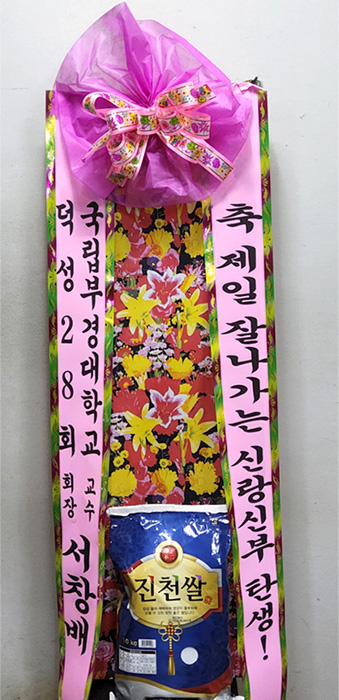 축 제일 잘나가는 신랑신부 탄생!
국립부경대학교 교수
덕성28회 회장 서창배
진천쌀